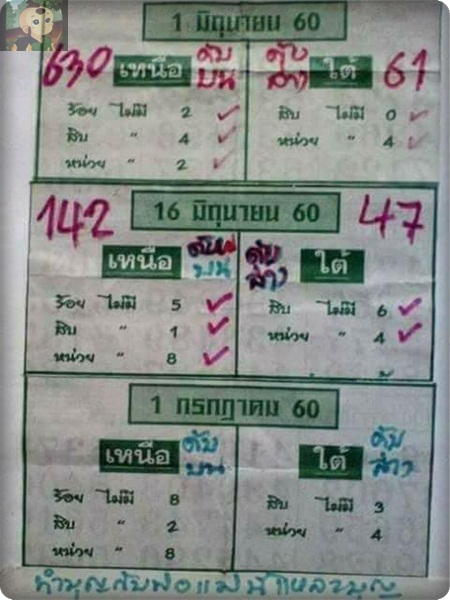 1 มิถุนายน 60
630 เหนือ ดับบน
ดับล่าง ใต้ 61
ร้อย ไม่มี 2
สิบ " 4
หน่วย " 2
สิบ ไม่มี 0
หน่วย " 4
142 16 มิถุนายน 60 47
เหนือ บน
ดับล่าง ใต้
ร้อย ไม่มี 5
สิบ " 1
หน่วย " 8
สิบ ไม่มี 6
หน่วย " 4
1 กรกฎาคม 60
เหนือ ดับบน
ใต้ ดับล่าง
ร้อย ไม่มี 8
สิบ " 2
หน่วย " 8
สิบ ไม่มี 3
หน่วย " 4
ทำบุญกับพ่อแม่